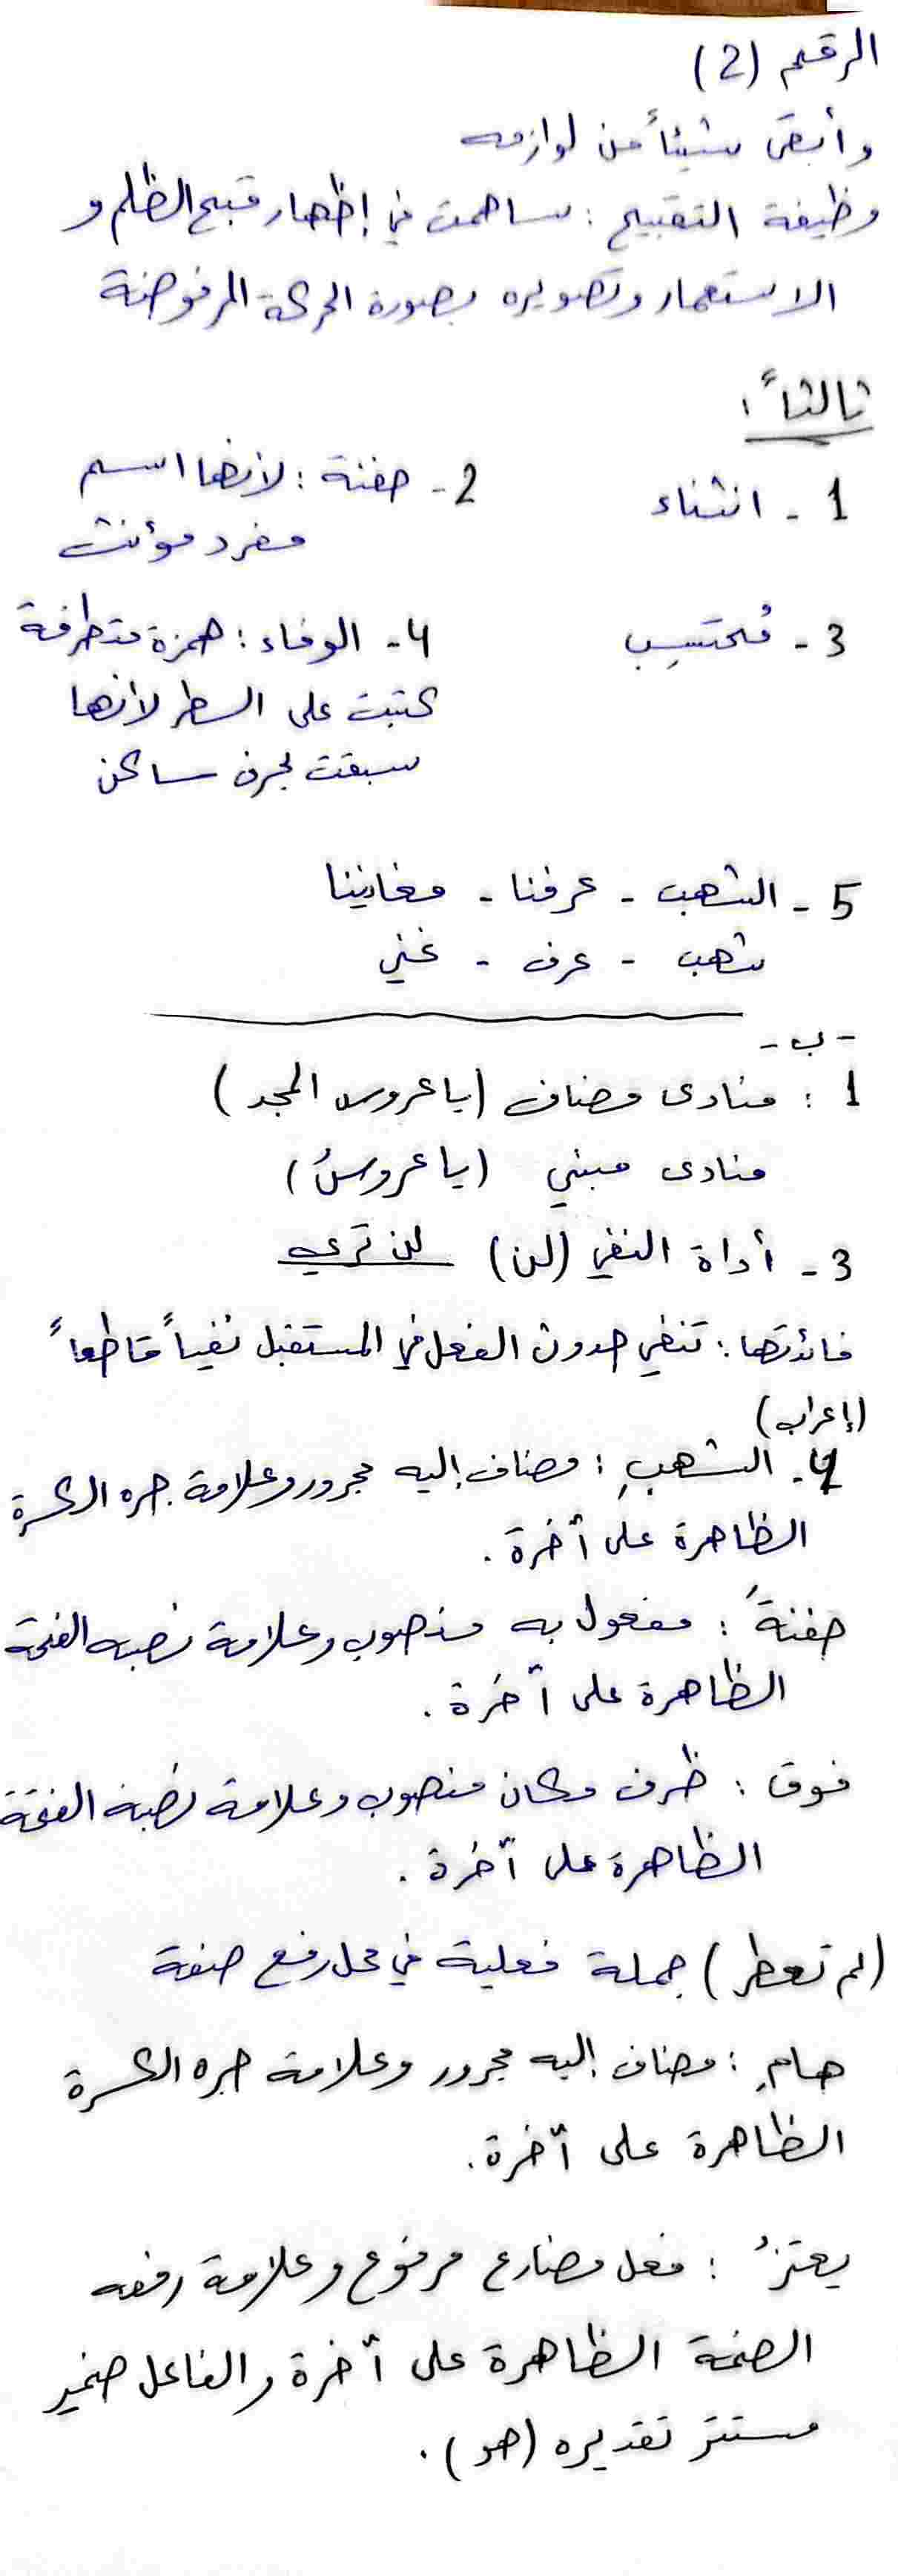 الرقم (2)
وأبقى شيئاً من لوازمه
وظيفة التقبيح : ساهمت في إظهار قبح الظلم و
الاستعمار وتصويره بصورة الحركة المرفوضة
ثالثاً :
1 - انتشاء
2 - حفنة : لأنها اسم
مفرد مؤنث
3 - مُحتسِب
4 - الوفاء : همزة متطرفة
كتبت على السطر لأنها
سبقت بحرف ساكن
5 - الشهب - عرفنا - مغانينا
شهب - عرف - غني
- ب -
1 : منادى مضاف (يا عروس المجد)
منادى مبني (يا عروسُ)
3 - أداة النفي (لن) لن تري
فائدتها : تنفي حدوث الفعل في المستقبل نفياً قاطعاً
(إعراب)
4 - الشهبِ : مضاف إليه مجرور وعلامة جره الكسرة
الظاهرة على آخرة .
حفنةً : مفعول به منصوب وعلامة نصبه الفتحة
الظاهرة على آخرة .
فوق : ظرف مكان منصوب وعلامة نصبه الفتحة
الظاهرة على آخرة .
(لم تعطر) جملة فعلية في محل رفع صفة
هامِ : مضاف إليه مجرور وعلامة جره الكسرة
الظاهرة على آخرة .
يعتزُ : فعل مضارع مرفوع وعلامة رفعه
الضمة الظاهرة على آخرة والفاعل ضمير
مستتر تقديره (هو) .